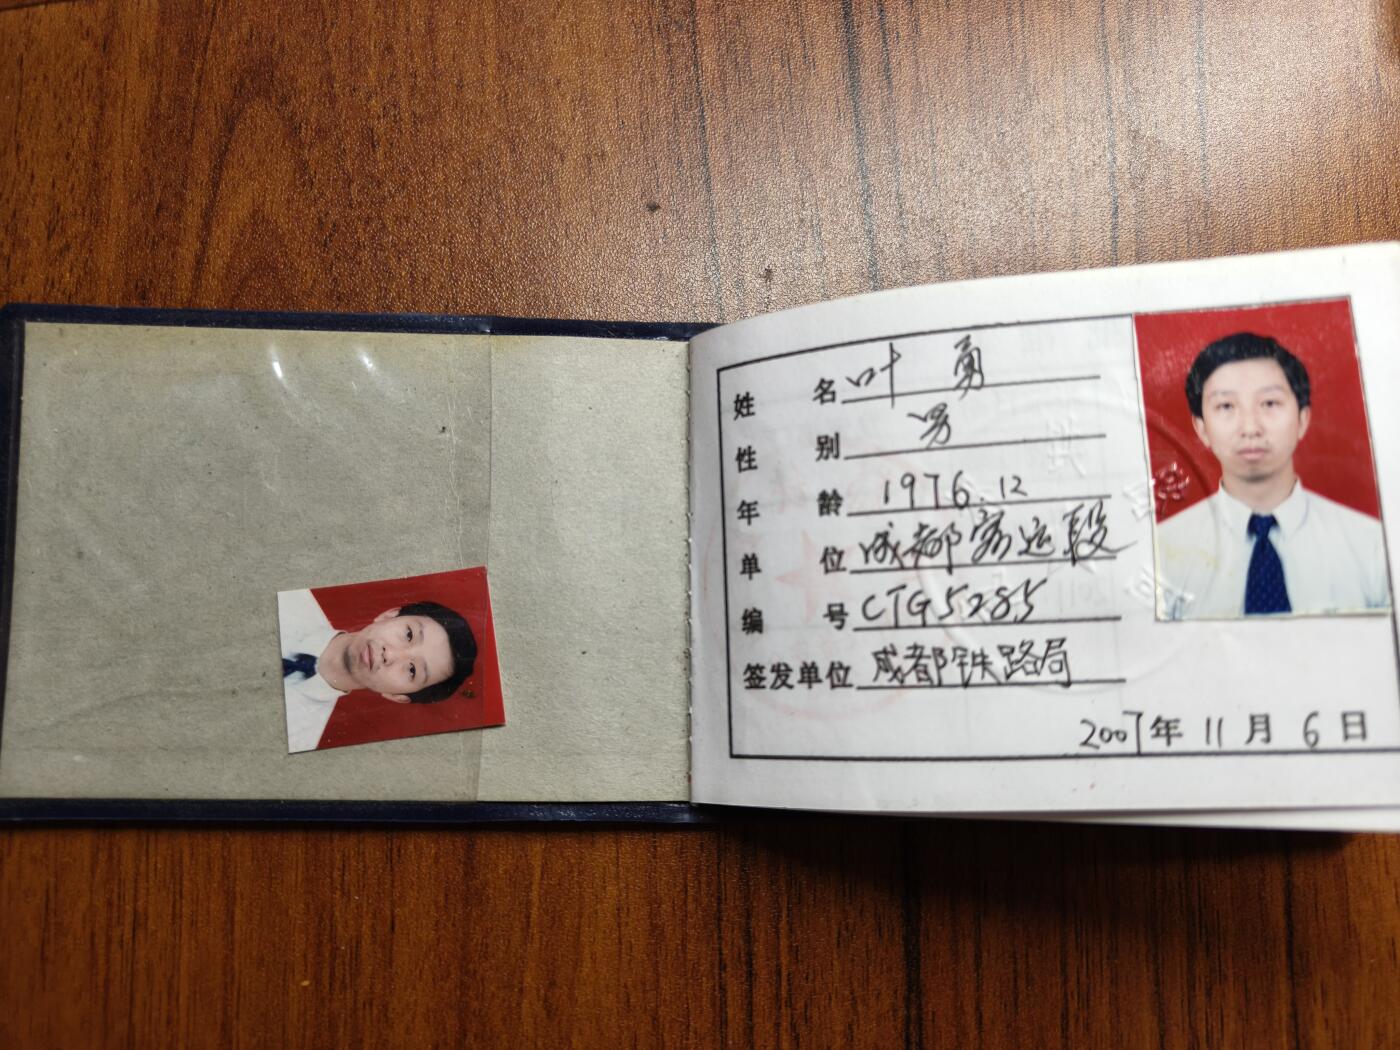 姓 名 叶 勇
性 别 男
年 龄 1976.12
单 位 成都客运段
编 号 CTG5285
签发单位 成都铁路局
2007年 11月 6日